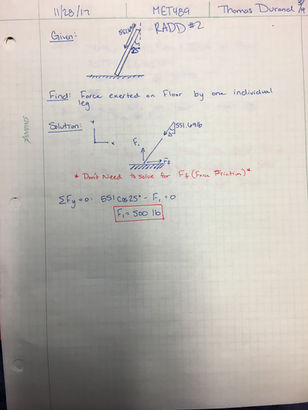 11/28/17 MET489 Thomas Durand 3/19
RADD #2
Given:
551.69lb
25°
Find: Force exerted on Floor by one individual
leg
Solution:
551.69lb
25°
F₁
Ff
x
* Don't Need to solve for Ff (Force Friction) *
ΣFy = 0: 551 cos25° - F₁ = 0
F₁ = 500 lb